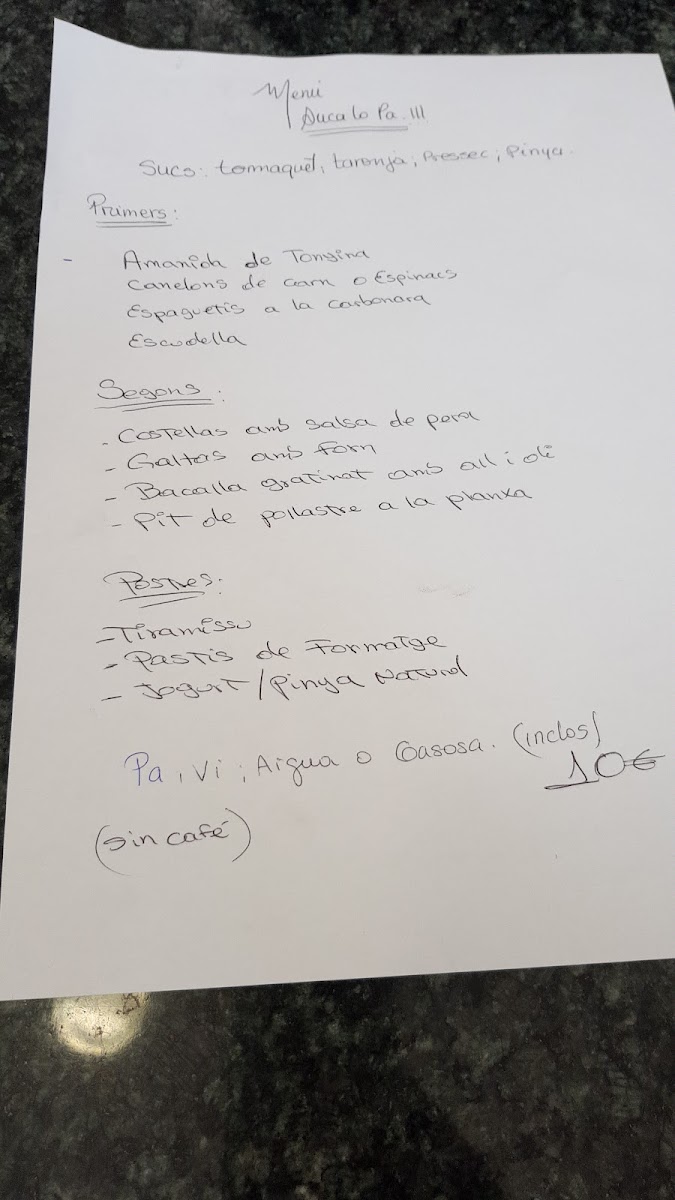 Menú
Sucalo Pa. !!!
Sucs: tomaquet; taronja; Pressec; Pinya.
Primers:
- Amanida de Tonyina
Canelons de carn o Espinacs
Espaguetis a la carbonara
Escudella
Segons:
- Costellas amb salsa de pera
- Galtas amb forn
- Bacalla gratinat amb all i oli
- Pit de pollastre a la planxa
Postres:
- Tiramissu
- Pastis de Formatge
- Jogurt / Pinya Natural
Pa, Vi; Aigua o Gasosa. (inclos)
10€
(sin café)